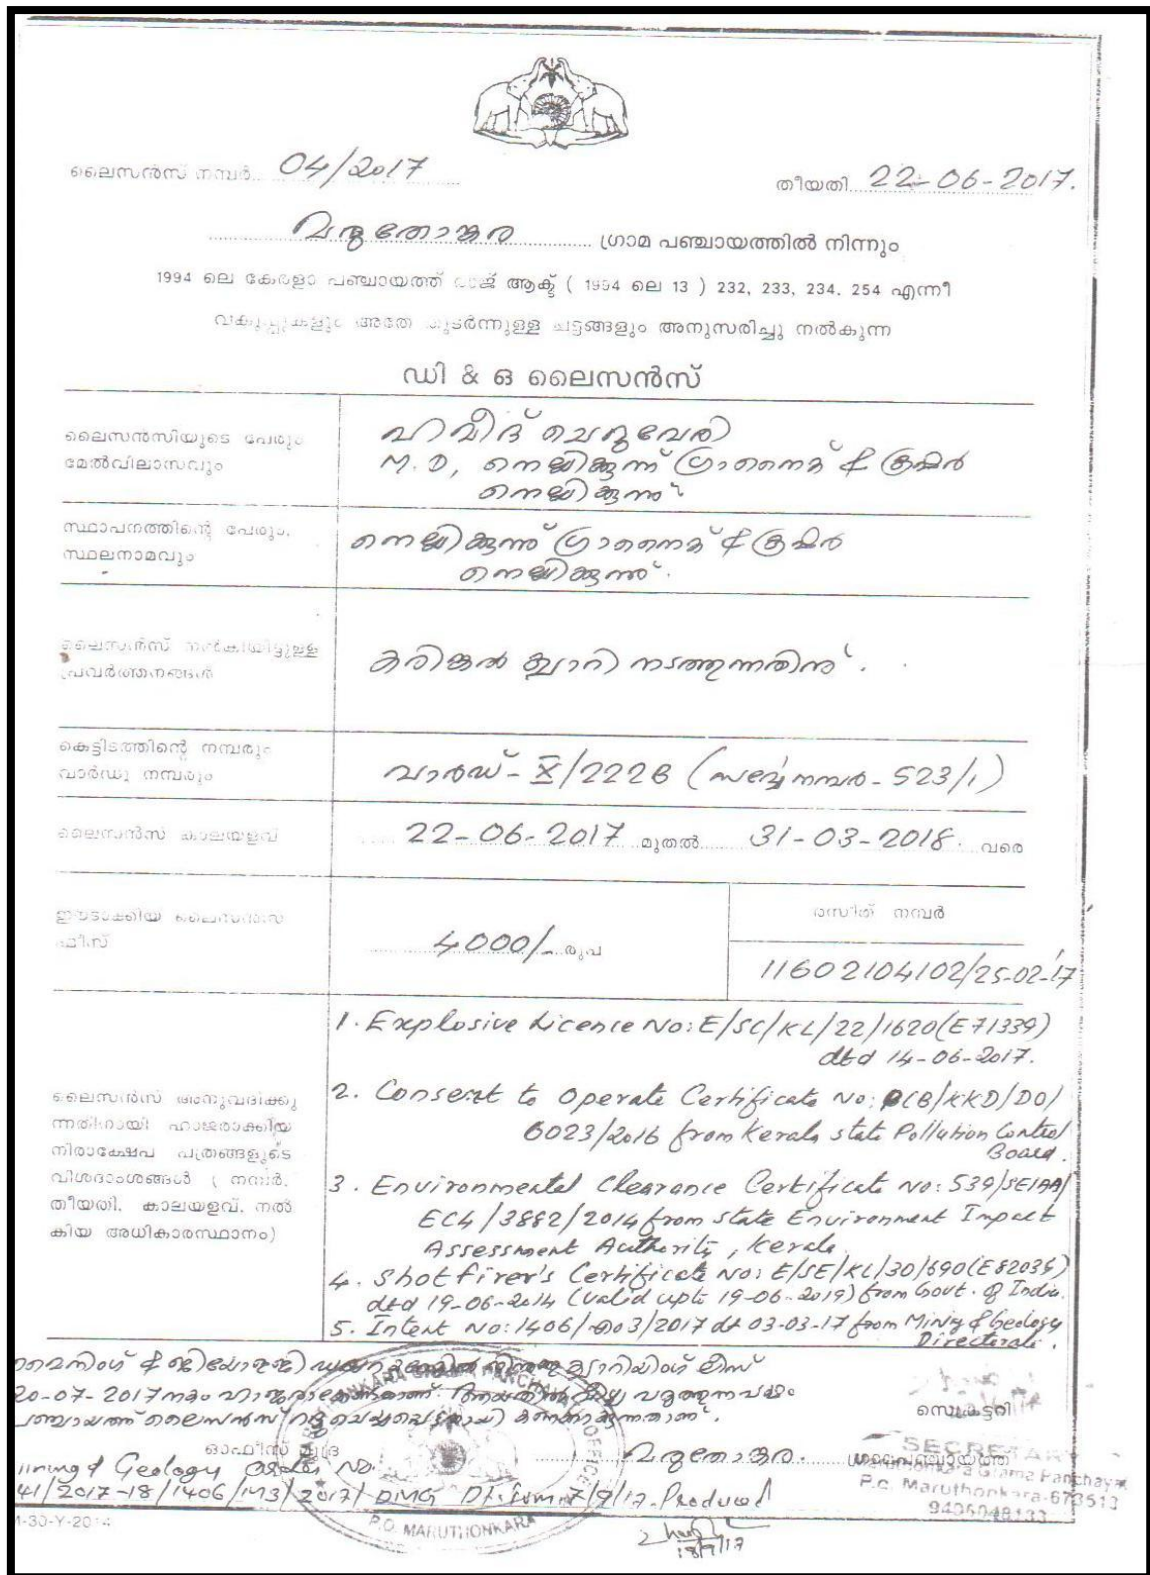 ലൈസൻസ് നമ്പർ 04/2017
തീയതി 22-06-2017.
മരുതോങ്കര ഗ്രാമ പഞ്ചായത്തിൽ നിന്നും
1994 ലെ കേരളാ പഞ്ചായത്ത് രാജ് ആക്ട് ( 1994 ലെ 13 ) 232, 233, 234, 254 എന്നീ
വകുപ്പുകളും അതേ തുടർന്നുള്ള ചട്ടങ്ങളും അനുസരിച്ചു നൽകുന്ന
ഡി & ഒ ലൈസൻസ്
ലൈസൻസിയുടെ പേരും
മേൽവിലാസവും
ചെറുവേരി
M.D, നെല്ലിക്കുന്ന് ഗ്രാനൈറ്റ് & ക്രഷർ
നെല്ലിക്കുന്ന്
സ്ഥാപനത്തിന്റെ പേരും,
സ്ഥലനാമവും
നെല്ലിക്കുന്ന് ഗ്രാനൈറ്റ് & ക്രഷർ
നെല്ലിക്കുന്ന്.
ലൈസൻസ് നൽകിയിട്ടുള്ള
പ്രവർത്തനങ്ങൾ
കരിങ്കൽ ക്വാറി നടത്തുന്നതിന്.
കെട്ടിടത്തിന്റെ നമ്പരും
വാർഡു നമ്പരും
വാർഡ് - X/222B (സർവ്വെ നമ്പർ - 523/1)
ലൈസൻസ് കാലയളവ്
22-06-2017 മുതൽ 31-03-2018. വരെ
ഈടാക്കിയ ലൈസൻസ്
ഫീസ്
4000/- രൂപ
രസീത് നമ്പർ
11602104102/25-02-17
ലൈസൻസ് അനുവദിക്കു
ന്നതിനായി ഹാജരാക്കിയ
നിരാക്ഷേപ പത്രങ്ങളുടെ
വിശദാംശങ്ങൾ ( നമ്പർ,
തീയതി, കാലയളവ്, നൽ
കിയ അധികാരസ്ഥാനം)
1. Explosive Licence No: E/SC/KL/22/1620(E71339)
dtd 14-06-2017.
2. Consent to Operate Certificate No: PCB/KKD/DO/
6023/2016 from Kerala state Pollution Control
Board.
3. Environmental Clearance Certificate No: 539/SEIAA/
EC4/3882/2014 from State Environment Impact
Assessment Authority, Kerala.
4. Shotfirer's Certificate No: E/SE/KL/30/690(E82035)
dtd 19-06-2014 (valid upto 19-06-2019) from Govt. of India.
5. Intent No: 1406/എം3/2017 dt 03-03-17 from Mining & Geology
Directorate.
മൈനിംഗ് & ജിയോളജി ക്വാറിയിംഗ് ലീസ്
20-07-2017 നകം ഹാജരാക്കേണ്ടതാണ്. വീഴ്ച വരുത്തുന്ന പക്ഷം
പഞ്ചായത്ത് ലൈസൻസ് റദ്ദ് ചെയ്യപ്പെട്ടതായി കണക്കാക്കുന്നതാണ്.
സെക്രട്ടറി
ഓഫീസ് മുദ്ര
മരുതോങ്കര ഗ്രാമപഞ്ചായത്ത്
SECRETARY
Maruthonkara Grama Panchayat
P.o. Maruthonkara-673513
Mining & Geology Order No.
41/2017-18/1406/M3/2017/DMG Produced
P.O. MARUTHONKARA
M-30-Y-2014
18/9/17